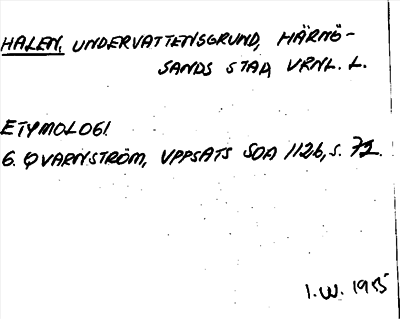 HALEN, UNDERVATTENSGRUND, HÄRNÖ-
SANDS STAD, VRNL. L.
ETYMOLOGI
G. QVARNSTRÖM, UPPSATS SOA 1126, S. 72.
I.W. 1955